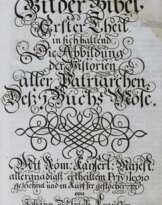 Bilder Bibel,
Erster Theil
in sich haltend
Die Abbildung
der Historien
aller Patriarchen
Deß 1 Buchs Mose.
Mit Röm. Kayserl. Mayest.
allergnädigst ertheiltem Privilegio
gezeichnet und in Kupffer gestochen
von
Johann Ulrich